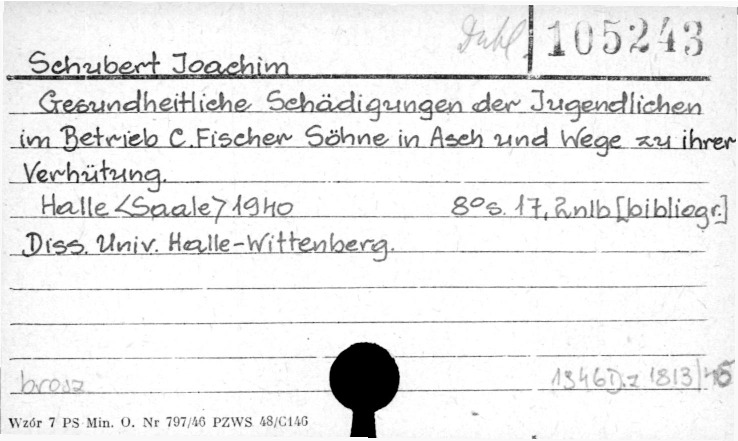 Dubl. 105243
Schubert Joachim
Gesundheitliche Schädigungen der Jugendlichen
im Betrieb C. Fischer Söhne in Asch und Wege zu ihrer
Verhütung.
Halle <Saale> 1940 8° s. 17, 2 nlb [bibliogr.]
Diss. Univ. Halle-Wittenberg.
brosz
Wzór 7 PS Min. O. Nr 797/46 PZWS 48/C146